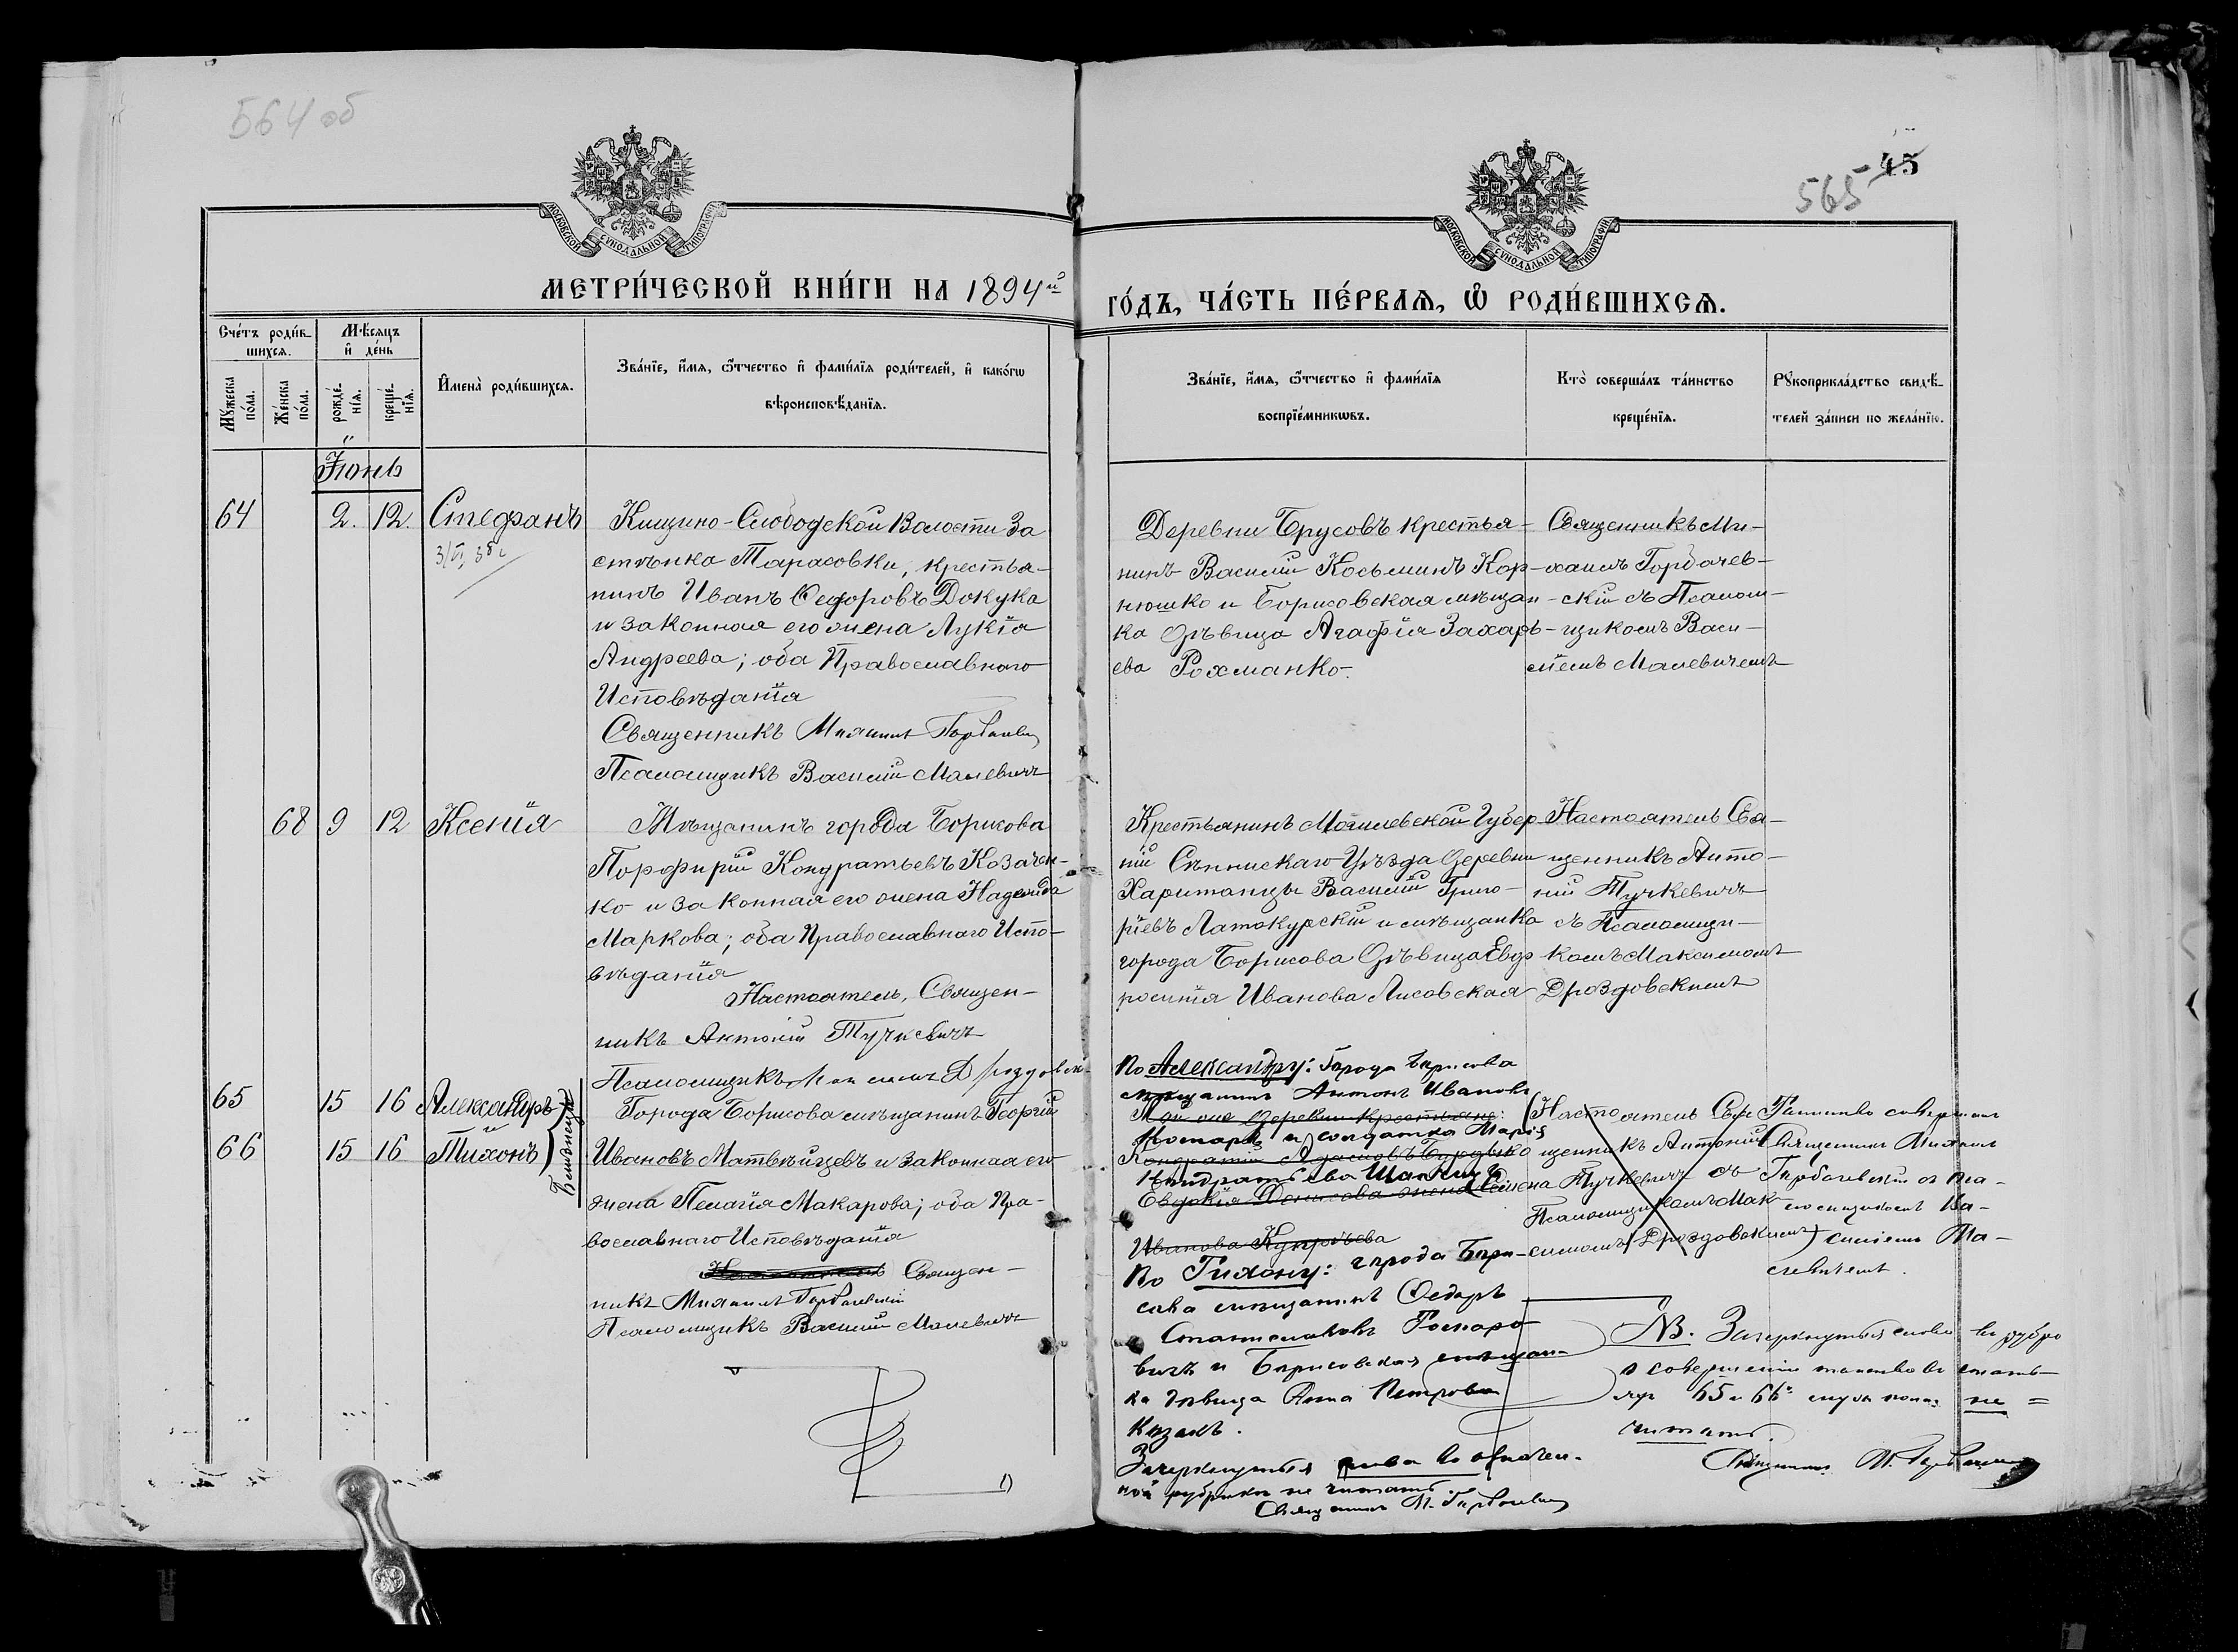 564 об
45
565
МОСКОВСКОЙ СѴНОДАЛЬНОЙ ТИПОГРАФІИ
МОСКОВСКОЙ СѴНОДАЛЬНОЙ ТИПОГРАФІИ
МЕТРИ́ЧЕСКОЙ КНИ́ГИ НА 1894й
ГО́ДЪ, ЧА́СТЬ ПЕ́РВАѦ, Ѡ҆ РОДИ́ВШИХСѦ.
Сче́тъ роди́в-
шихсѧ.
Мѣ́сяцъ
и҆ де́нь
Мꙋ́жеска по́ла.
Же́нска по́ла.
рожде́-нїѧ.
креще́-нїѧ.
И҆мена̀ роди́вшихсѧ.
Зва́нїе, и҆́мѧ, ѻ҆́тчество и҆ фами́лїѧ роди́телей, и҆ како́гѡ
вѣроисповѣ́данїѧ.
Зва́нїе, и҆́мѧ, ѻ҆́тчество и҆ фами́лїѧ
воспрїе́мникѡвъ.
Кто̀ соверша́лъ та́инство
креще́нїѧ.
Рꙋкоприкла́дство свидѣ́-
телей за́писи по жела́нїю.
Іюнь
64 2. 12. Стефанъ
Кищино-Слободской Волости За
стѣнка Тарасовки, крестья-
нинъ Иванъ Ѳедоровъ Докука
и законная его жена Лукія
Андреева; оба Православнаго
Исповѣданія
Священникъ Михаилъ Горбачевскій
Псаломщикъ Василій Малевичъ
Деревни Брусовъ крестья-
нинъ Василій Косьминъ Кор-
нюшко и Борисовская мѣщан-
ка дѣвица Агафія Захарь-
ева Рохманко.
Священникъ Ми-
хаилъ Горбачев-
скій съ Псалом-
щикомъ Васи-
ліемъ Малевичемъ
68 9 12 Ксенія
Мѣщанинъ города Борисова
Порфирій Кондратьевъ Козачен-
ко и законная его жена Надежда
Маркова; оба Православнаго Испо-
вѣданія
Настоятель, Священ-
никъ Антоній Тучкевичъ
Псаломщикъ Максимъ Дроздовск
Крестьянинъ Могилевской Губер
ніи Сѣннискаго Уѣзда деревни
Харитонцы Василій Григо-
ріевъ Латокурскій и мѣщанка
города Борисова дѣвица Евф
росинія Иванова Лисовская
Настоятель Свя-
щенникъ Анто-
ній Тучкевичъ
съ Псаломщи-
комъ Максимомъ
Дроздовскимъ
65 15 16 Александръ
и
66 15 16 Тихонъ
Близнецы
Города Борисова мѣщанинъ Георгій
Ивановъ Матвѣйцевъ и законная его
жена Пелагія Макарова; оба Пра-
вославнаго Исповѣданія
Настоятель Священ-
никъ Михаилъ Горбачевскій
Псаломщикъ Василій Малевичъ
По Александру: Города Борисова
мѣщанинъ Антонъ Ивановъ
и солдатка Марія
Кондратьева
Евдокія Денисова жена Семена
Иванова Купрѣева
По Тихону: города Бори-
сова мѣщанинъ Ѳедоръ
Станиславовъ Госпаро
вичъ и Борисовская мѣщан-
ка дѣвица Анна Петрова
Козакъ.
Зачеркнутыя слова въ означен-
ной рубрикѣ не читать.
Священникъ М. Горбачевскій
Настоятель Свя
щенникъ Антоній
Тучкевичъ съ
Псаломщикомъ Мак-
симомъ Дроздовскимъ
Таинство совершалъ
Священникъ Михаилъ
Горбачевскій съ Пса-
ломщикомъ Ва-
силіемъ Ма-
левичемъ.
NB. Зачеркнутыя слова въ рубри
о совершеніи таинства въ стать-
65 и 66 не =
читать.
Священникъ М. Горбачевскій